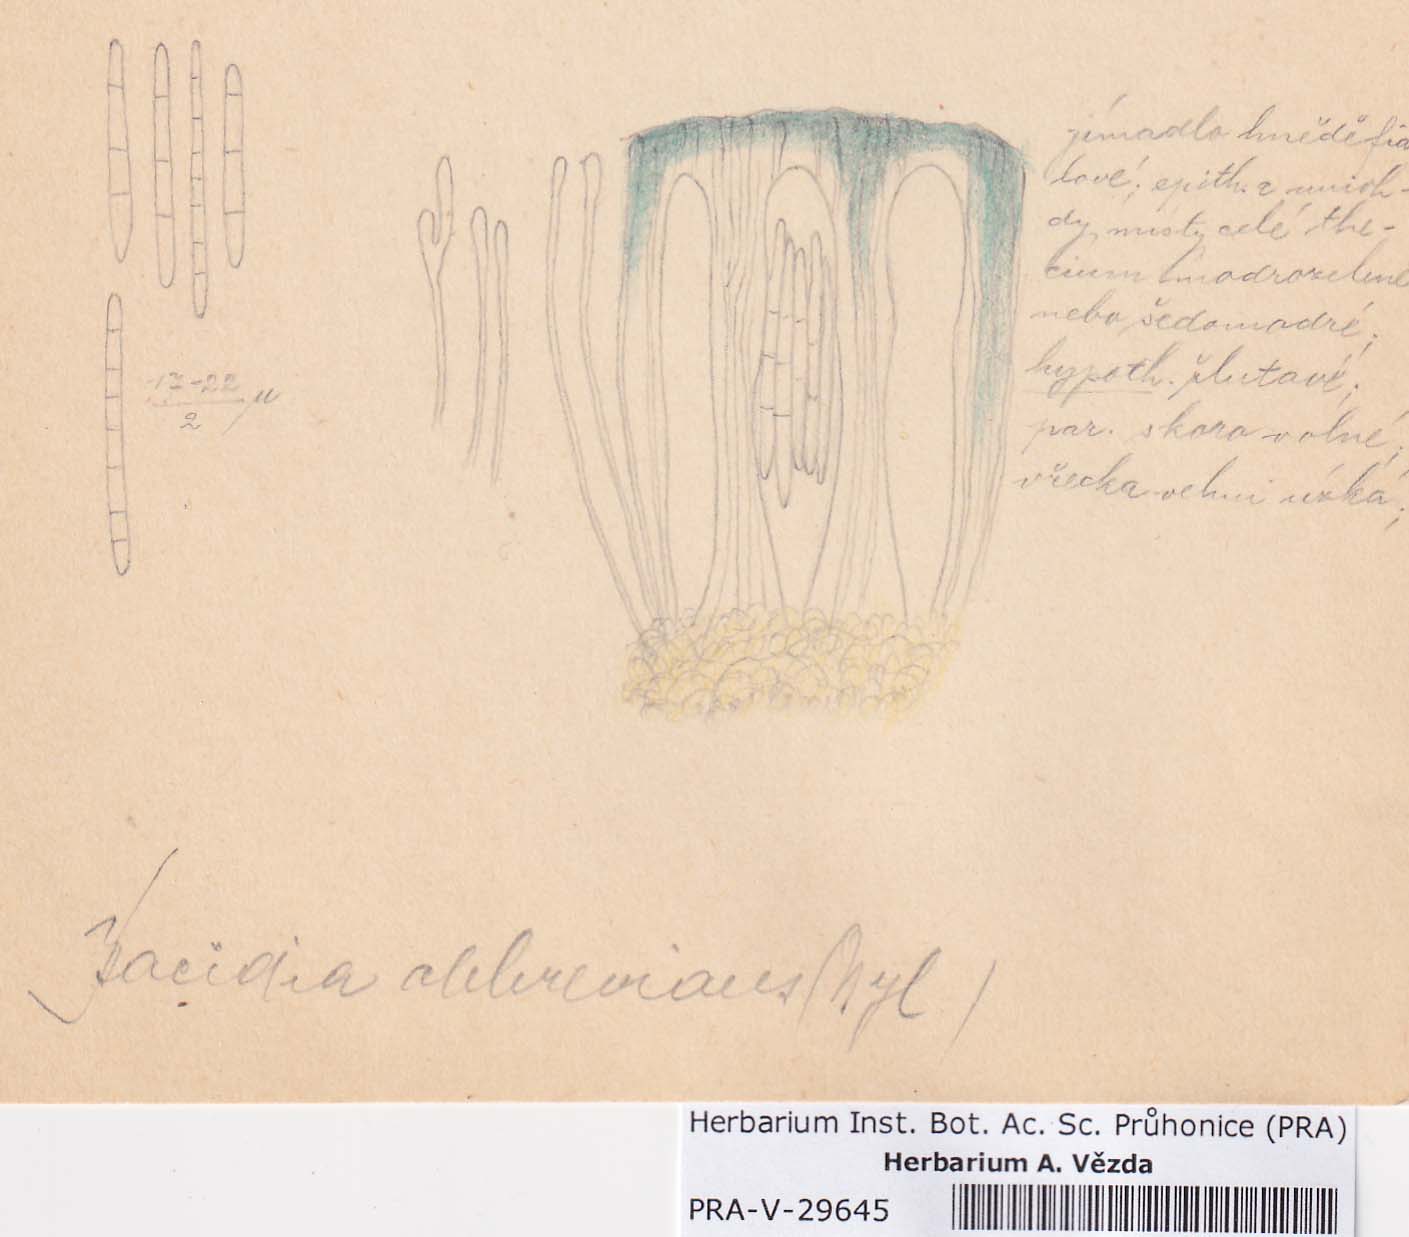 jímadlo hnědě fia
lové; epith. a mích-
dy místy celé the-
cium modrozelené
nebo šedomodré;
hypoth. žlutavé;
par. skoro volné;
vřecka velmi úzká;
17-22
2 μ
Bacidia abbrevians (Nyl)
Herbarium Inst. Bot. Ac. Sc. Průhonice (PRA)
Herbarium A. Vězda
PRA-V-29645